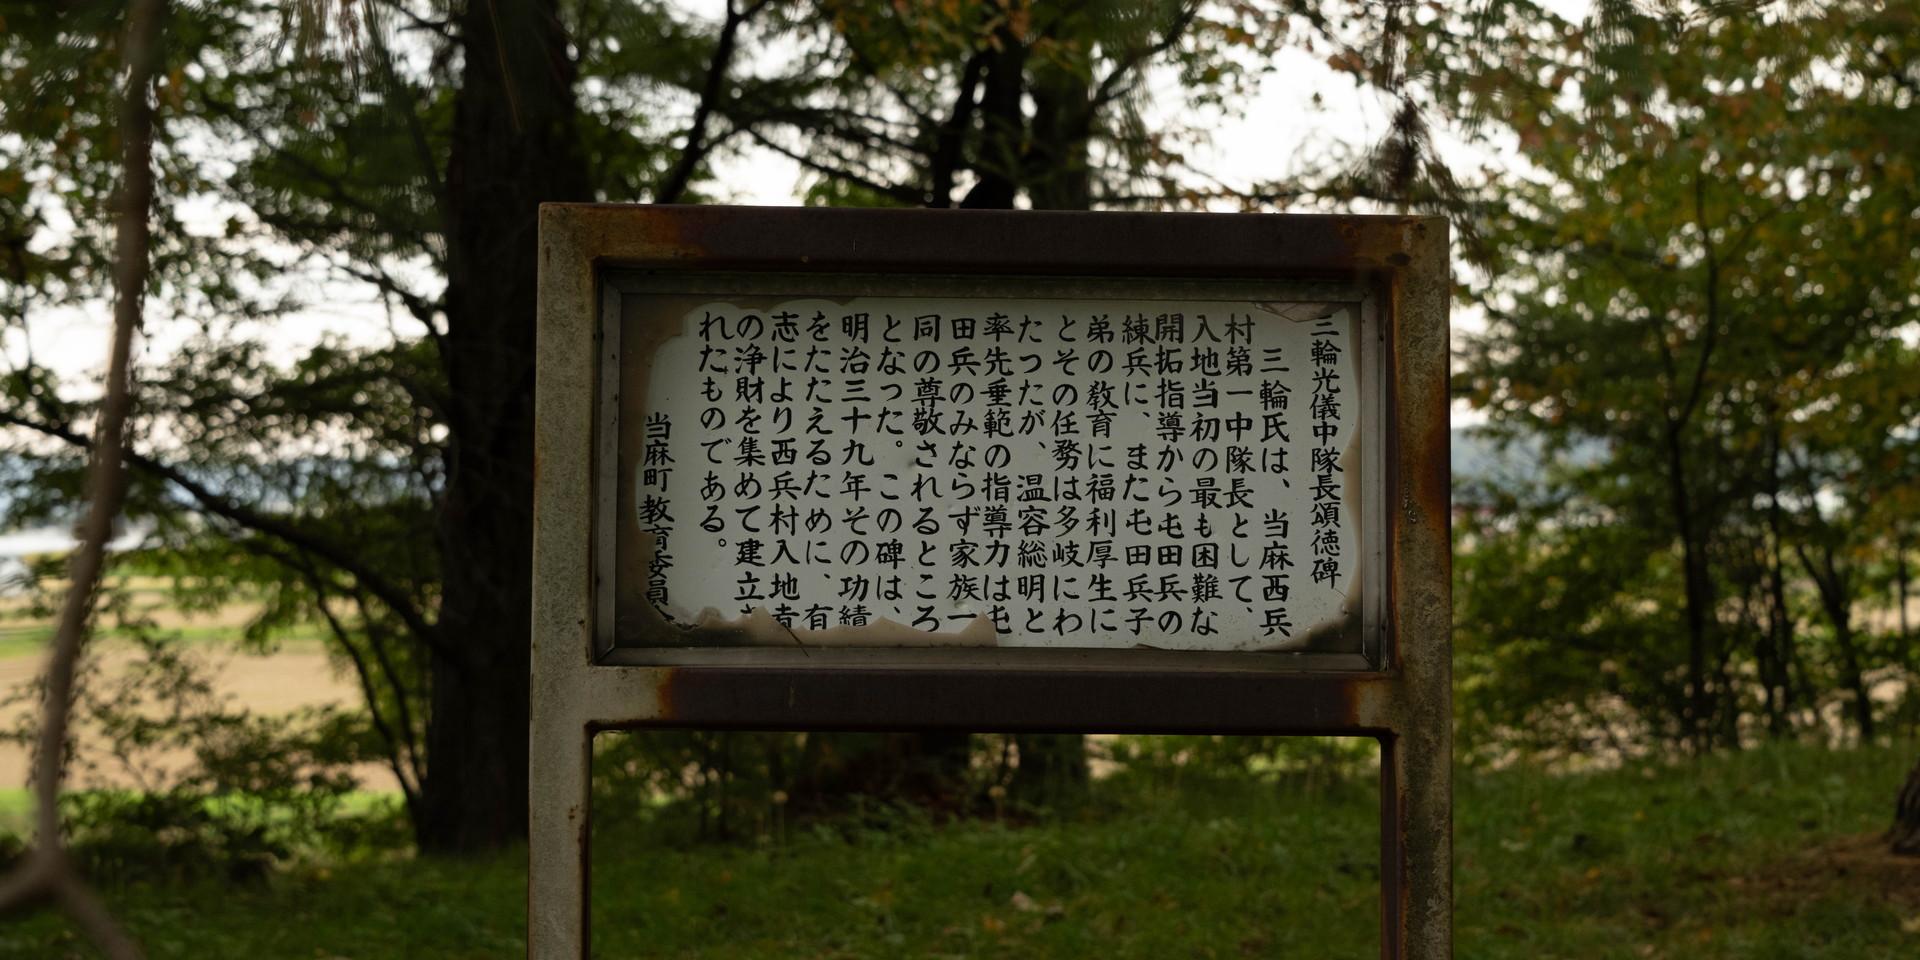 三輪光儀中隊長頌徳碑
三輪氏は、当麻西兵
村第一中隊長として、
入地当初の最も困難な
開拓指導から屯田兵の
練兵に、また屯田兵子
弟の教育に福利厚生に
とその任務は多岐にわ
たったが、温容総明と
率先垂範の指導力は屯
田兵のみならず家族一
同の尊敬されるところ
となった。この碑は、
明治三十九年その功績
をたたえるために、有
志により西兵村入地者
の浄財を集めて建立さ
れたものである。
当麻町教育委員会